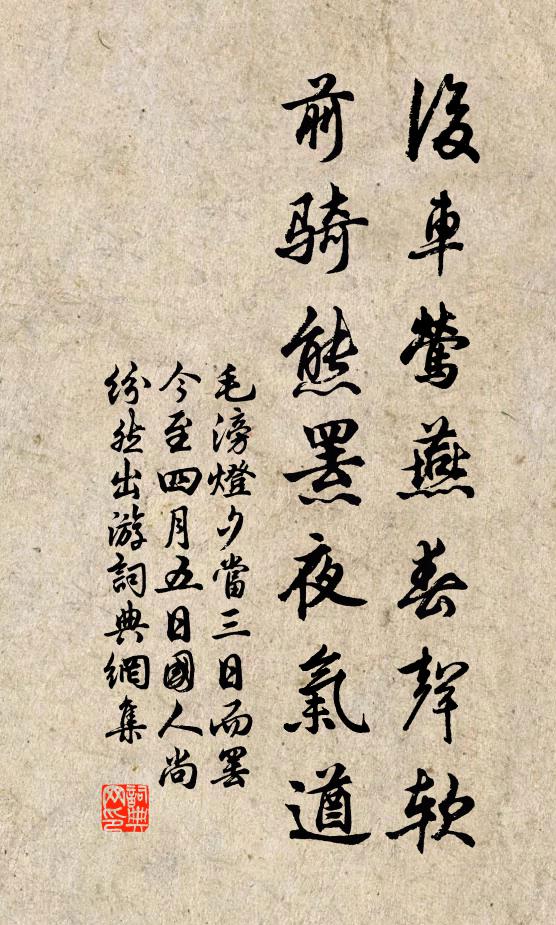 後車鶯燕春聲軟
前騎熊羆夜氣遒
毛滂燈夕當三日而罷
今至四月五日國人尚
紛然出游詞典網集
詞典
网印